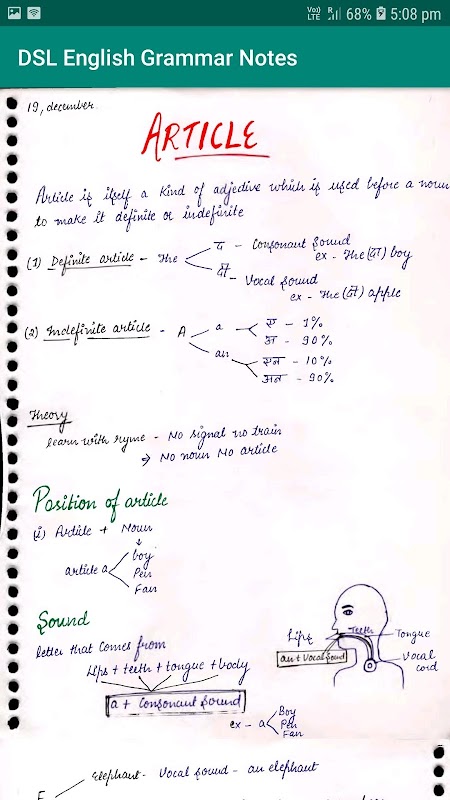 Vo)) LTE R 68% 5:08 pm
DSL English Grammar Notes
19, december
ARTICLE
Article is itself a kind of adjective which is used before a noun
to make it definite or indefinite
(1) Definite article - The
द - Consonant Sound
ex - The (द) boy
दी - Vocal Sound
ex - The (दी) apple
(2) Indefinite article - A
a
ए - 1%
अ - 90%
an
एन - 10%
अन - 90%
Theory
learn with ryme - No signal no train
⇒ No noun No article
Position of article
(i) Article + Noun
↓
article a
boy
Pen
Fan
Sound
letter that comes from
Lips + teeth + tongue + body
a + Consonant Sound
ex - a
Boy
Pen
Fan
Lips
Teeth
Tongue
an + Vocal Sound
Vocal
cord
Elephant - Vocal Sound - an elephant
E